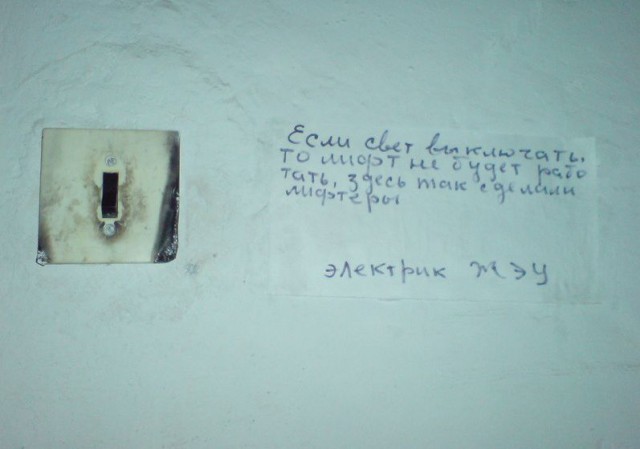 Если свет выключать.
то лифт не будет рабо
тать, здесь так сделали
лифтеры
электрик ЖЭУ